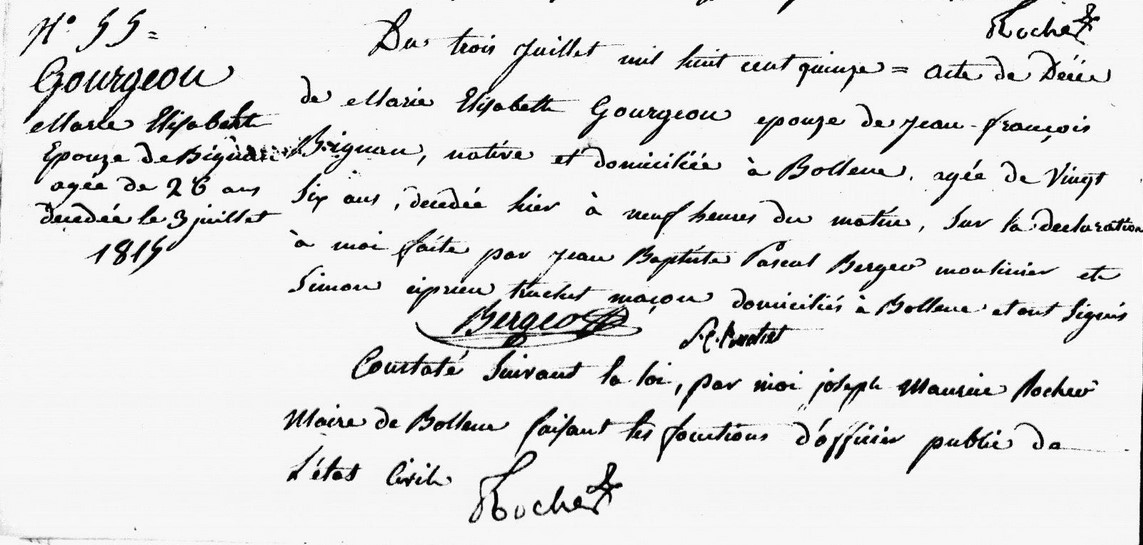 Rocher
N.° 55 =
Gourgeon
Marie Elisabeth
Epouze de
agée de 26 ans
decedée le 3 juillet
1815
Du trois Juillet mil huit cent quinze = acte de Décé
de Marie Elisabeth Gourgeon epouze de jean-françois
Brignan, native et domiciliée à Bollene, agée de Vingt
Six ans, decedée hier à neuf heures du matin, Sur la declaration
à moi faite par jean Baptiste Pascal Berger moulinier et
Simon ciprien truchet maçon domiciliés à Bollene et ont Signés
Constaté Suivant la loi, par moi joseph Maurice Rocher
Maire de Bollene faisant les fonctions d'officier public de
L'état Civil
Rocher